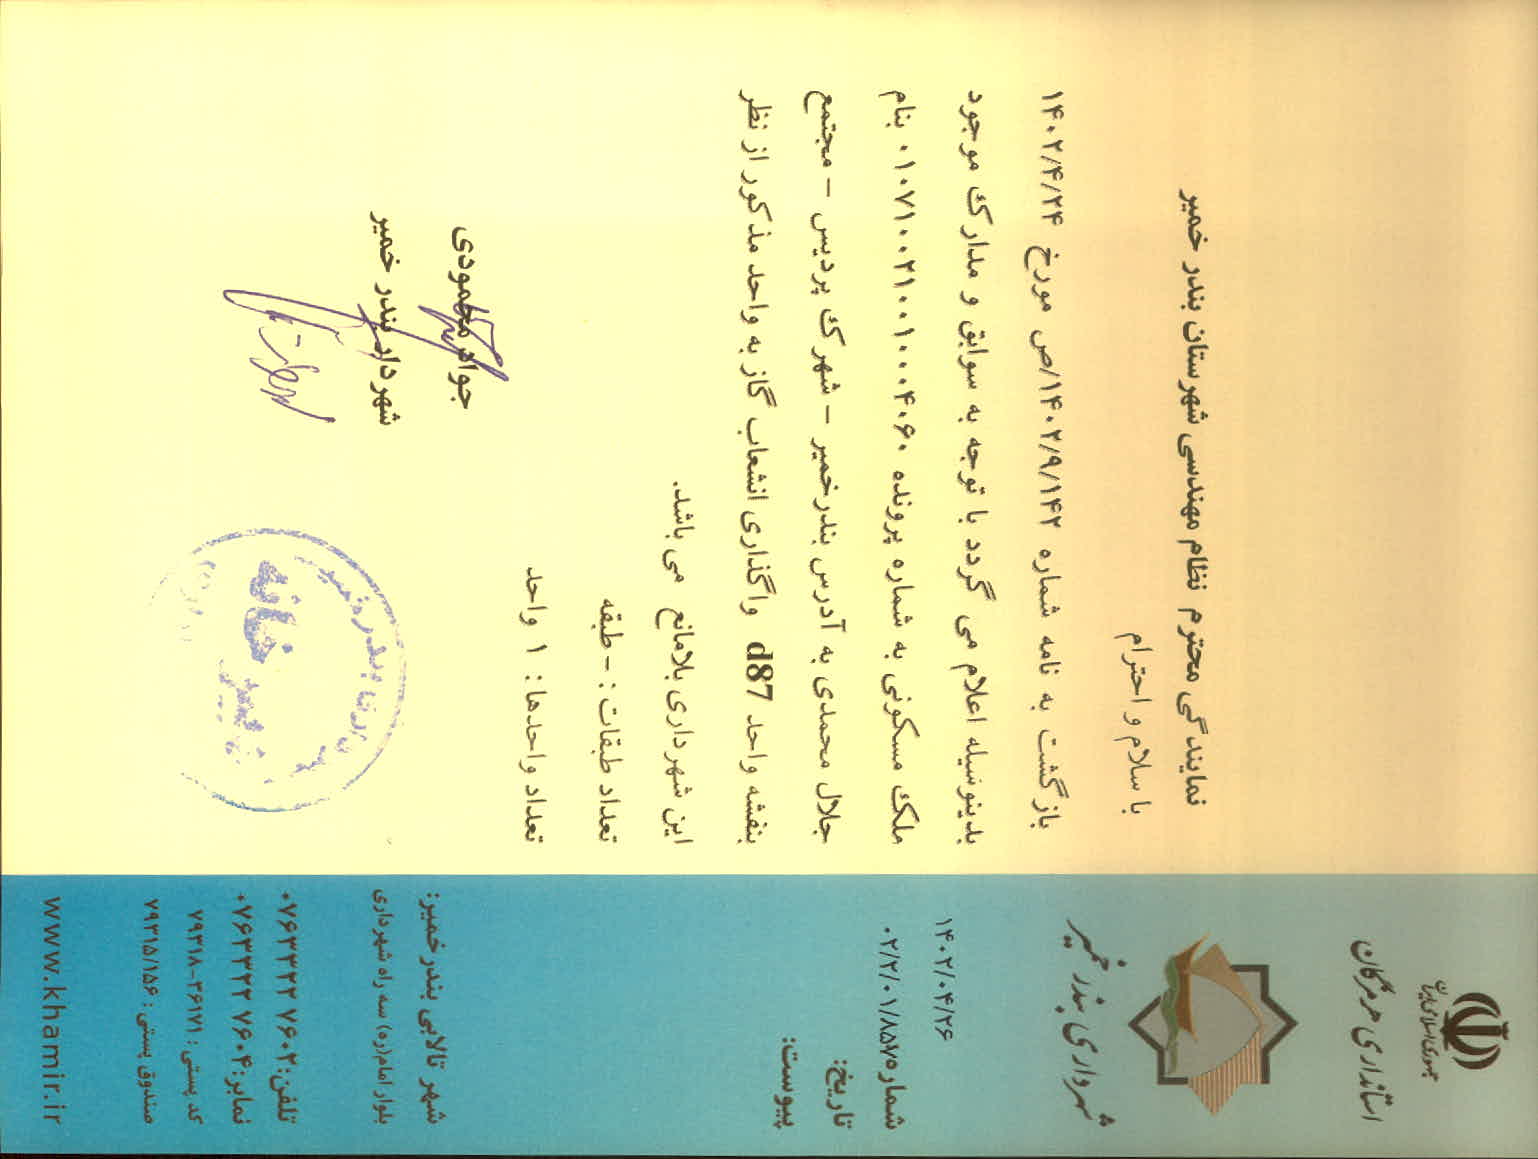 جمهوری اسلامی ایران
استانداری هرمزگان
شهرداری بندر خمیر
۱۴۰۲/۰۴/۲۶
شماره ۰۲/۲/۰۱/۸۵۷۵
تاریخ:
پیوست:
نمایندگی محترم نظام مهندسی شهرستان بندر خمیر
با سلام و احترام
بازگشت به نامه شماره ۱۴۰۲/۹/۱۴۲/ص مورخ ۱۴۰۲/۴/۲۴
بدینوسیله اعلام می گردد با توجه به سوابق و مدارک موجود
ملک مسکونی به شماره پرونده ۰۱۰۷۱۰۰۲۱۰۰۱۰۰۰۴۰۶۰ بنام
جلال محمدی به آدرس بندرخمیر – شهرک پردیس – مجتمع
بنفشه واحد d87 واگذاری انشعاب گاز به واحد مذکور از نظر
این شهرداری بلامانع می باشد.
تعداد طبقات : – طبقه
تعداد واحدها : ۱ واحد
جواد محمودی
شهردار بندر خمیر
شهر تالابی بندرخمیر:
بلوار امام(ره) سه راه شهرداری
تلفن: ۰۷۶۳۳۲۲۷۶۰۲
نمابر: ۰۷۶۳۳۲۲۷۶۰۴
کد پستی : ۳۶۱۷۱–۷۹۳۱۸
صندوق پستی : ۷۹۳۱۵/۱۵۶
www.khamir.ir